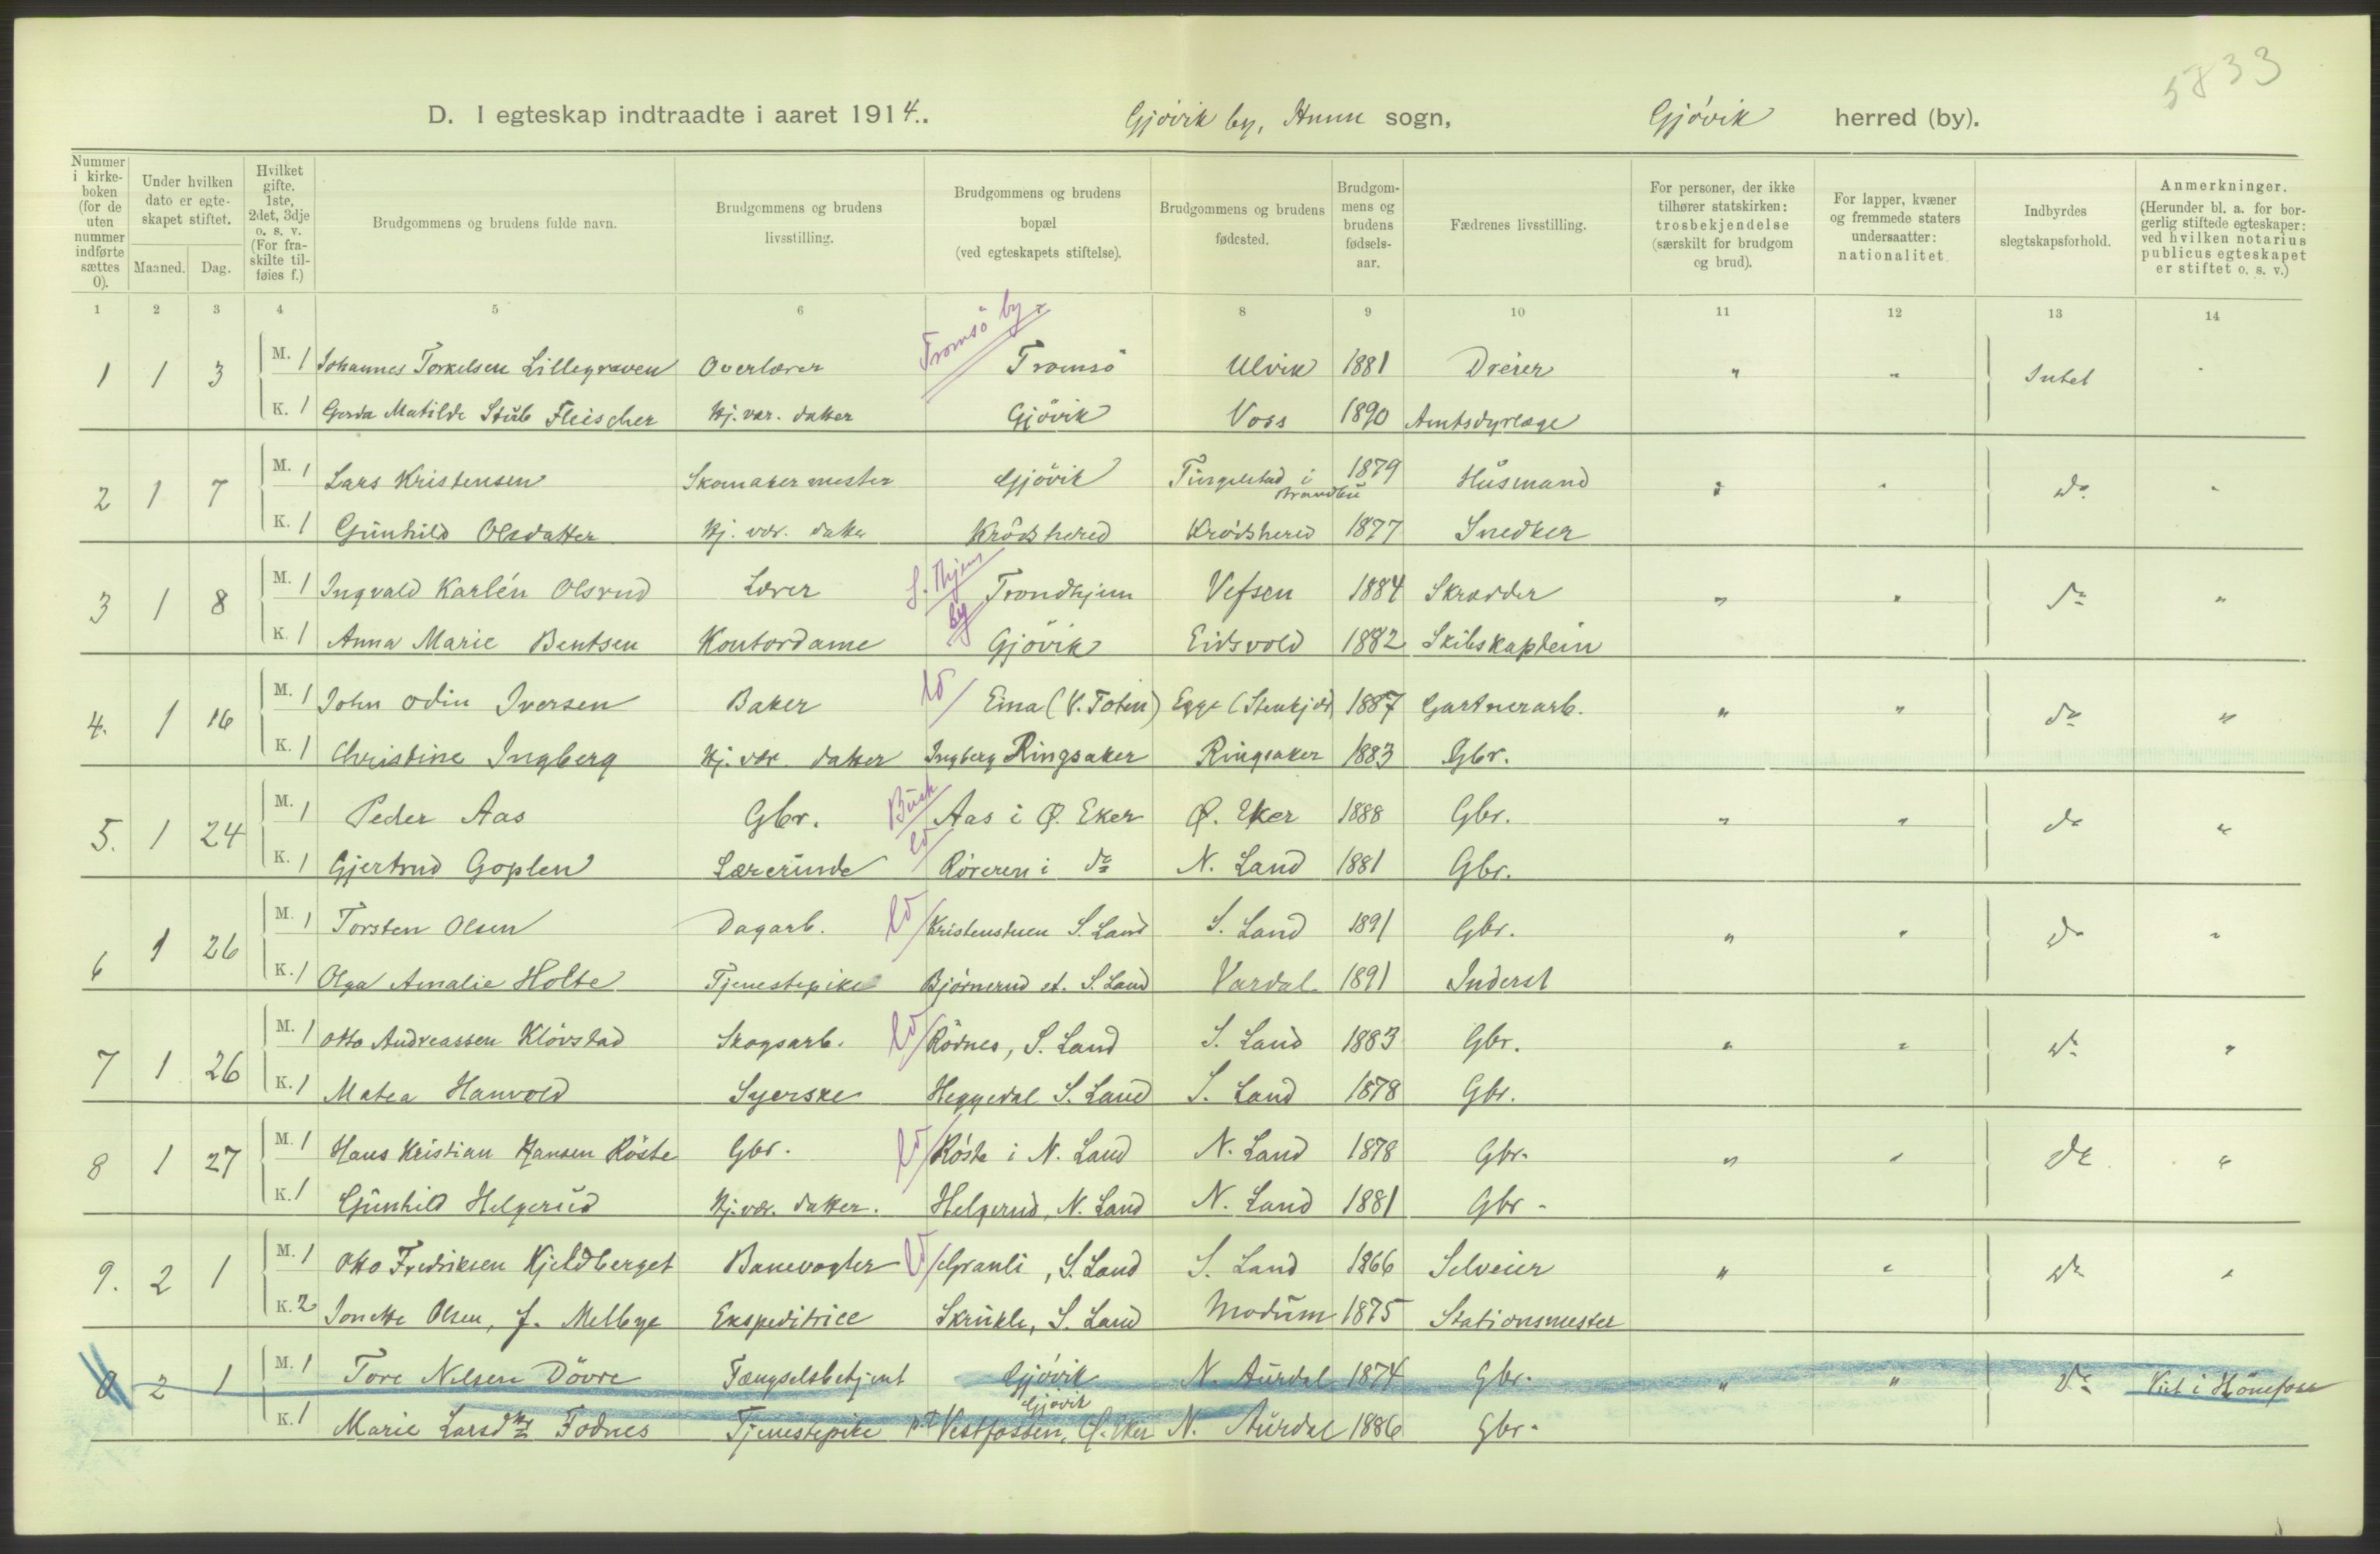 5833
D. I egteskap indtraadte i aaret 1914.. Gjövik by, Hunn sogn, Gjövik herred (by).
Nummer i kirkeboken (for de uten nummer indførte sættes 0). Under hvilken dato er egteskapet stiftet. Maaned. Dag. Hvilket gifte. 1ste, 2det, 3dje o. s. v. (For fraskilte tilføies f.) Brudgommens og brudens fulde navn. Brudgommens og brudens livsstilling. Brudgommens og brudens bopæl (ved egteskapets stiftelse). Brudgommens og brudens fødested. Brudgommens og brudens fødselsaar. Fædrenes livsstilling. For personer, der ikke tilhører statskirken: trosbekjendelse (særskilt for brudgom og brud). For lapper, kvæner og fremmede staters undersaatter: nationalitet. Indbyrdes slegtskapsforhold. Anmerkninger. (Herunder bl. a. for borgerlig stiftede egteskaper: ved hvilken notarius publicus egteskapet er stiftet o. s. v.)
1 2 3 4 5 6 8 9 10 11 12 13 14
Tromsö by
1 1 3 M. 1 Johannes Torkelsen Lillegraven Overlærer Tromsö Ulvik 1881 Dreier " " Intet "
K. 1 Gerda Matilde Stub Fleischer Hj. vær. datter Gjövik Voss 1890 Amtsdyrlæge
2 1 7 M. 1 Lars Kristensen Skomakermester Gjövik Tingelstad i Brandbu 1879 Husmand " " do "
K. 1 Gunhild Olsdatter Hj. vær. datter Krödshered Krödshered 1877 Snedker
S. Thjem by
3 1 8 M. 1 Ingvald Karlén Olsrud Lærer Trondhjem Vefsen 1884 Skrædder " " do "
K. 1 Anna Marie Bentsen Kontordame Gjövik Eidsvold 1882 Skibskaptein
4. 1 16 M. 1 John Odin Iversen Baker Eina (V. Toten) Egge (Stenkjær) 1887 Gartnerarb. " " do "
K. 1 Christine Ingberg Hj. vær. datter Ingberg Ringsaker Ringsaker 1883 Gbr.
Busk
5. 1 24 M. 1 Peder Aas Gbr. Aas i Ø. Eker Ø. Eker 1888 Gbr. " " do "
K. 1 Gjertrud Goplen Lærerinde Røreren i do N. Land 1881 Gbr.
6 1 26 M. 1 Torsten Olsen Dagarb. Kristenstuen S. Land S. Land 1891 Gbr. " " do "
K. 1 Olga Amalie Holte Tjenestepike Bjørnerud et. S. Land Vardal 1891 Inderst
7 1 26 M. 1 Otto Andreassen Klövstad Skogsarb. Rödnes, S. Land S. Land 1883 Gbr. " " do "
K. 1 Matea Hanvold Syerske Heggedal S. Land S. Land 1878 Gbr.
8 1 27 M. 1 Hans Kristian Hansen Röste Gbr. Röste i N. Land N. Land 1878 Gbr. " " do "
K. 1 Gunhild Helgerud Hj. vær. datter. Helgerud, N. Land N. Land 1881 Gbr.
9. 2 1 M. 1 Otto Fredriksen Kjeldberget Banevogter Granli, S. Land S. Land 1866 Selveier " " do "
K. 2 Jonette Olsen, f. Melbye Ekspeditrice Skrukli, S. Land Modum 1875 Stationsmester
0 2 1 M. 1 Tore Nilsen Dövre Fængselsbetjent Gjövik N. Aurdal 1874 Gbr. " " do Viet i Hönefoss
Gjövik
K. 1 Marie Larsdtr Fodnes Tjenestepike p.t. Vestfossen, Ø. Eker N. Aurdal 1886 Gbr.